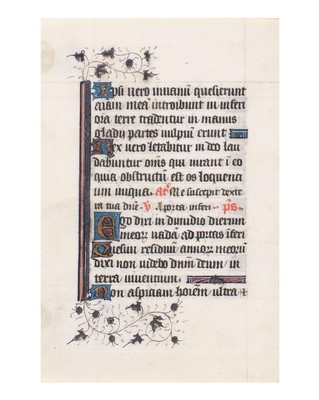 Ipsi vero in vanū quesierunt
aīam meā introibunt in inferi
ora terre tradentur in manus
gladii partes vulpiū erunt
Rex vero letabitur in deo lau
dabuntur om̄s qui iurant ī eo
quia obstructū est os loquenci
um iniqua. Añ Me suscepit dexte
ra tua dn̄e. V A porta inferi. ps.
Ego dixi in dimidio dierum
meorū vadā ad portas īferi
Quesivi residuū annorū meorū
dixi non videbo dnm̄ deum in
terra viventium.
Non aspiciam hoīem ultra et